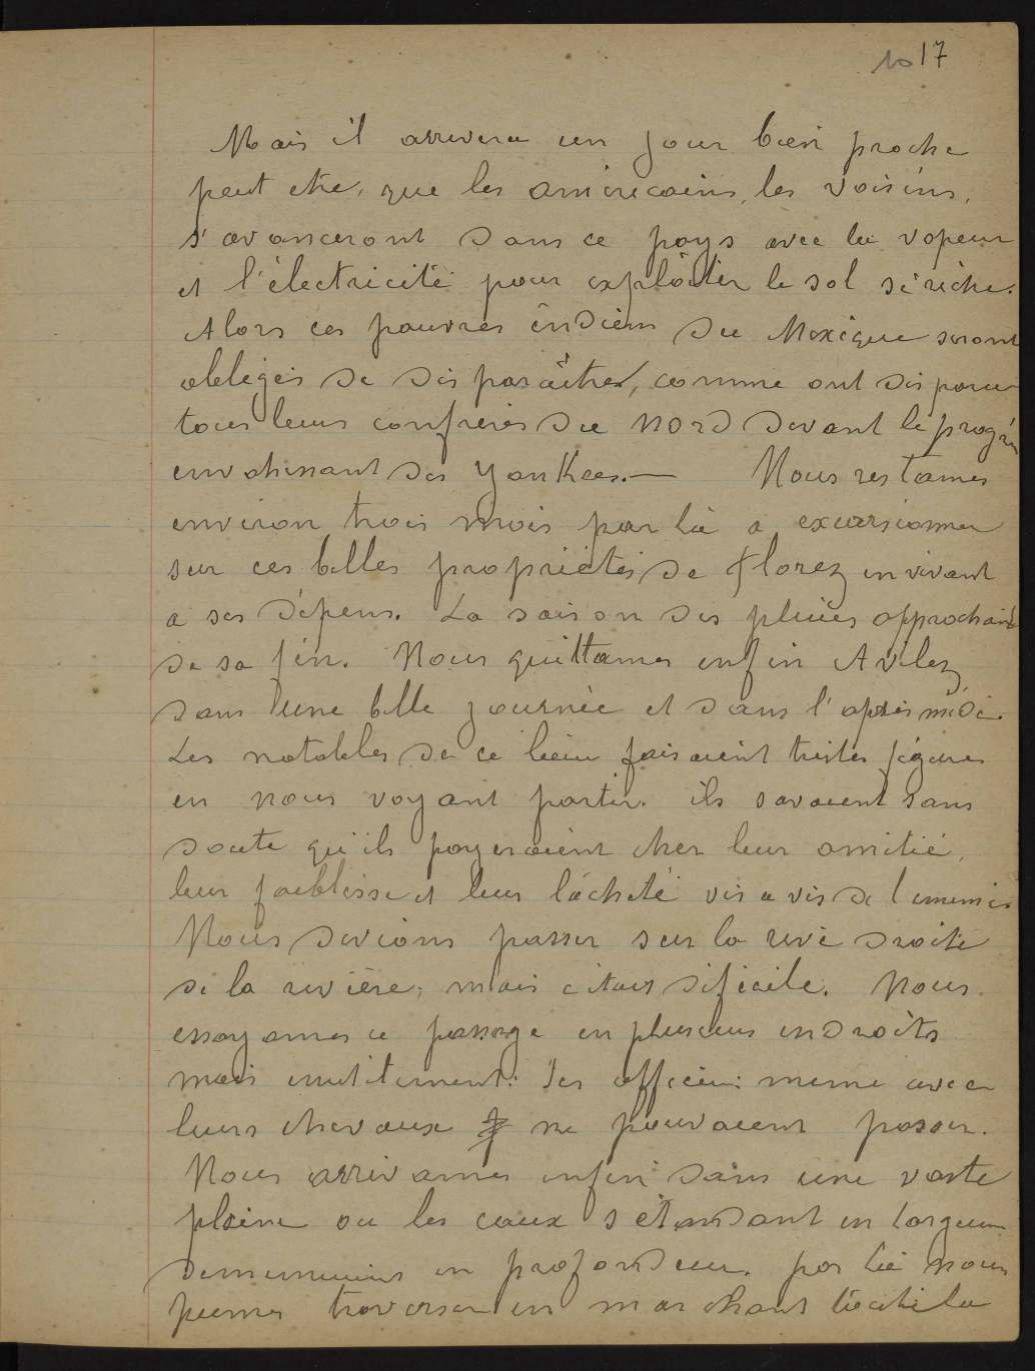 1017
Mais il arrivera un jour bien proche
peut etre, que les américains, les voisins,
s'avanceront dans ce pays avec la vapeur
et l'électricité pour exploiter le sol si riche.
Alors ces pauvres indiens du Mexique seront
obligés de disparaître, comme ont disparu
tous leurs confrères du nord devant le progrès
envahissant des Yankees.— Nous restames
environ trois mois par là a excursionner
sur ces belles propriétés de florez en vivant
a ses dépens. La saison des pluies approchait
de sa fin. Nous quittames enfin Avilez
dans une belle journée et dans l'après midi.
Les notables de ce lieu faisaient tristes figures
en nous voyant partir. ils savaient sans
doute qu'ils payeraient cher leur amitié,
leur faiblesse et leur lâcheté vis a vis de l'ennemi.
Nous devions passer sur la rive droite
de la rivière, mais c'etait dificile. Nous
essayames ce passage en plusieurs endroits
mais inutilement: les officiers meme avec
leurs chevaux ne pouvaient passer.
Nous arrivames enfin dans une vaste
plaine ou les eaux s'étendant en largeur
diminuaient en profondeur. par là nous
pumes traverser en marchant